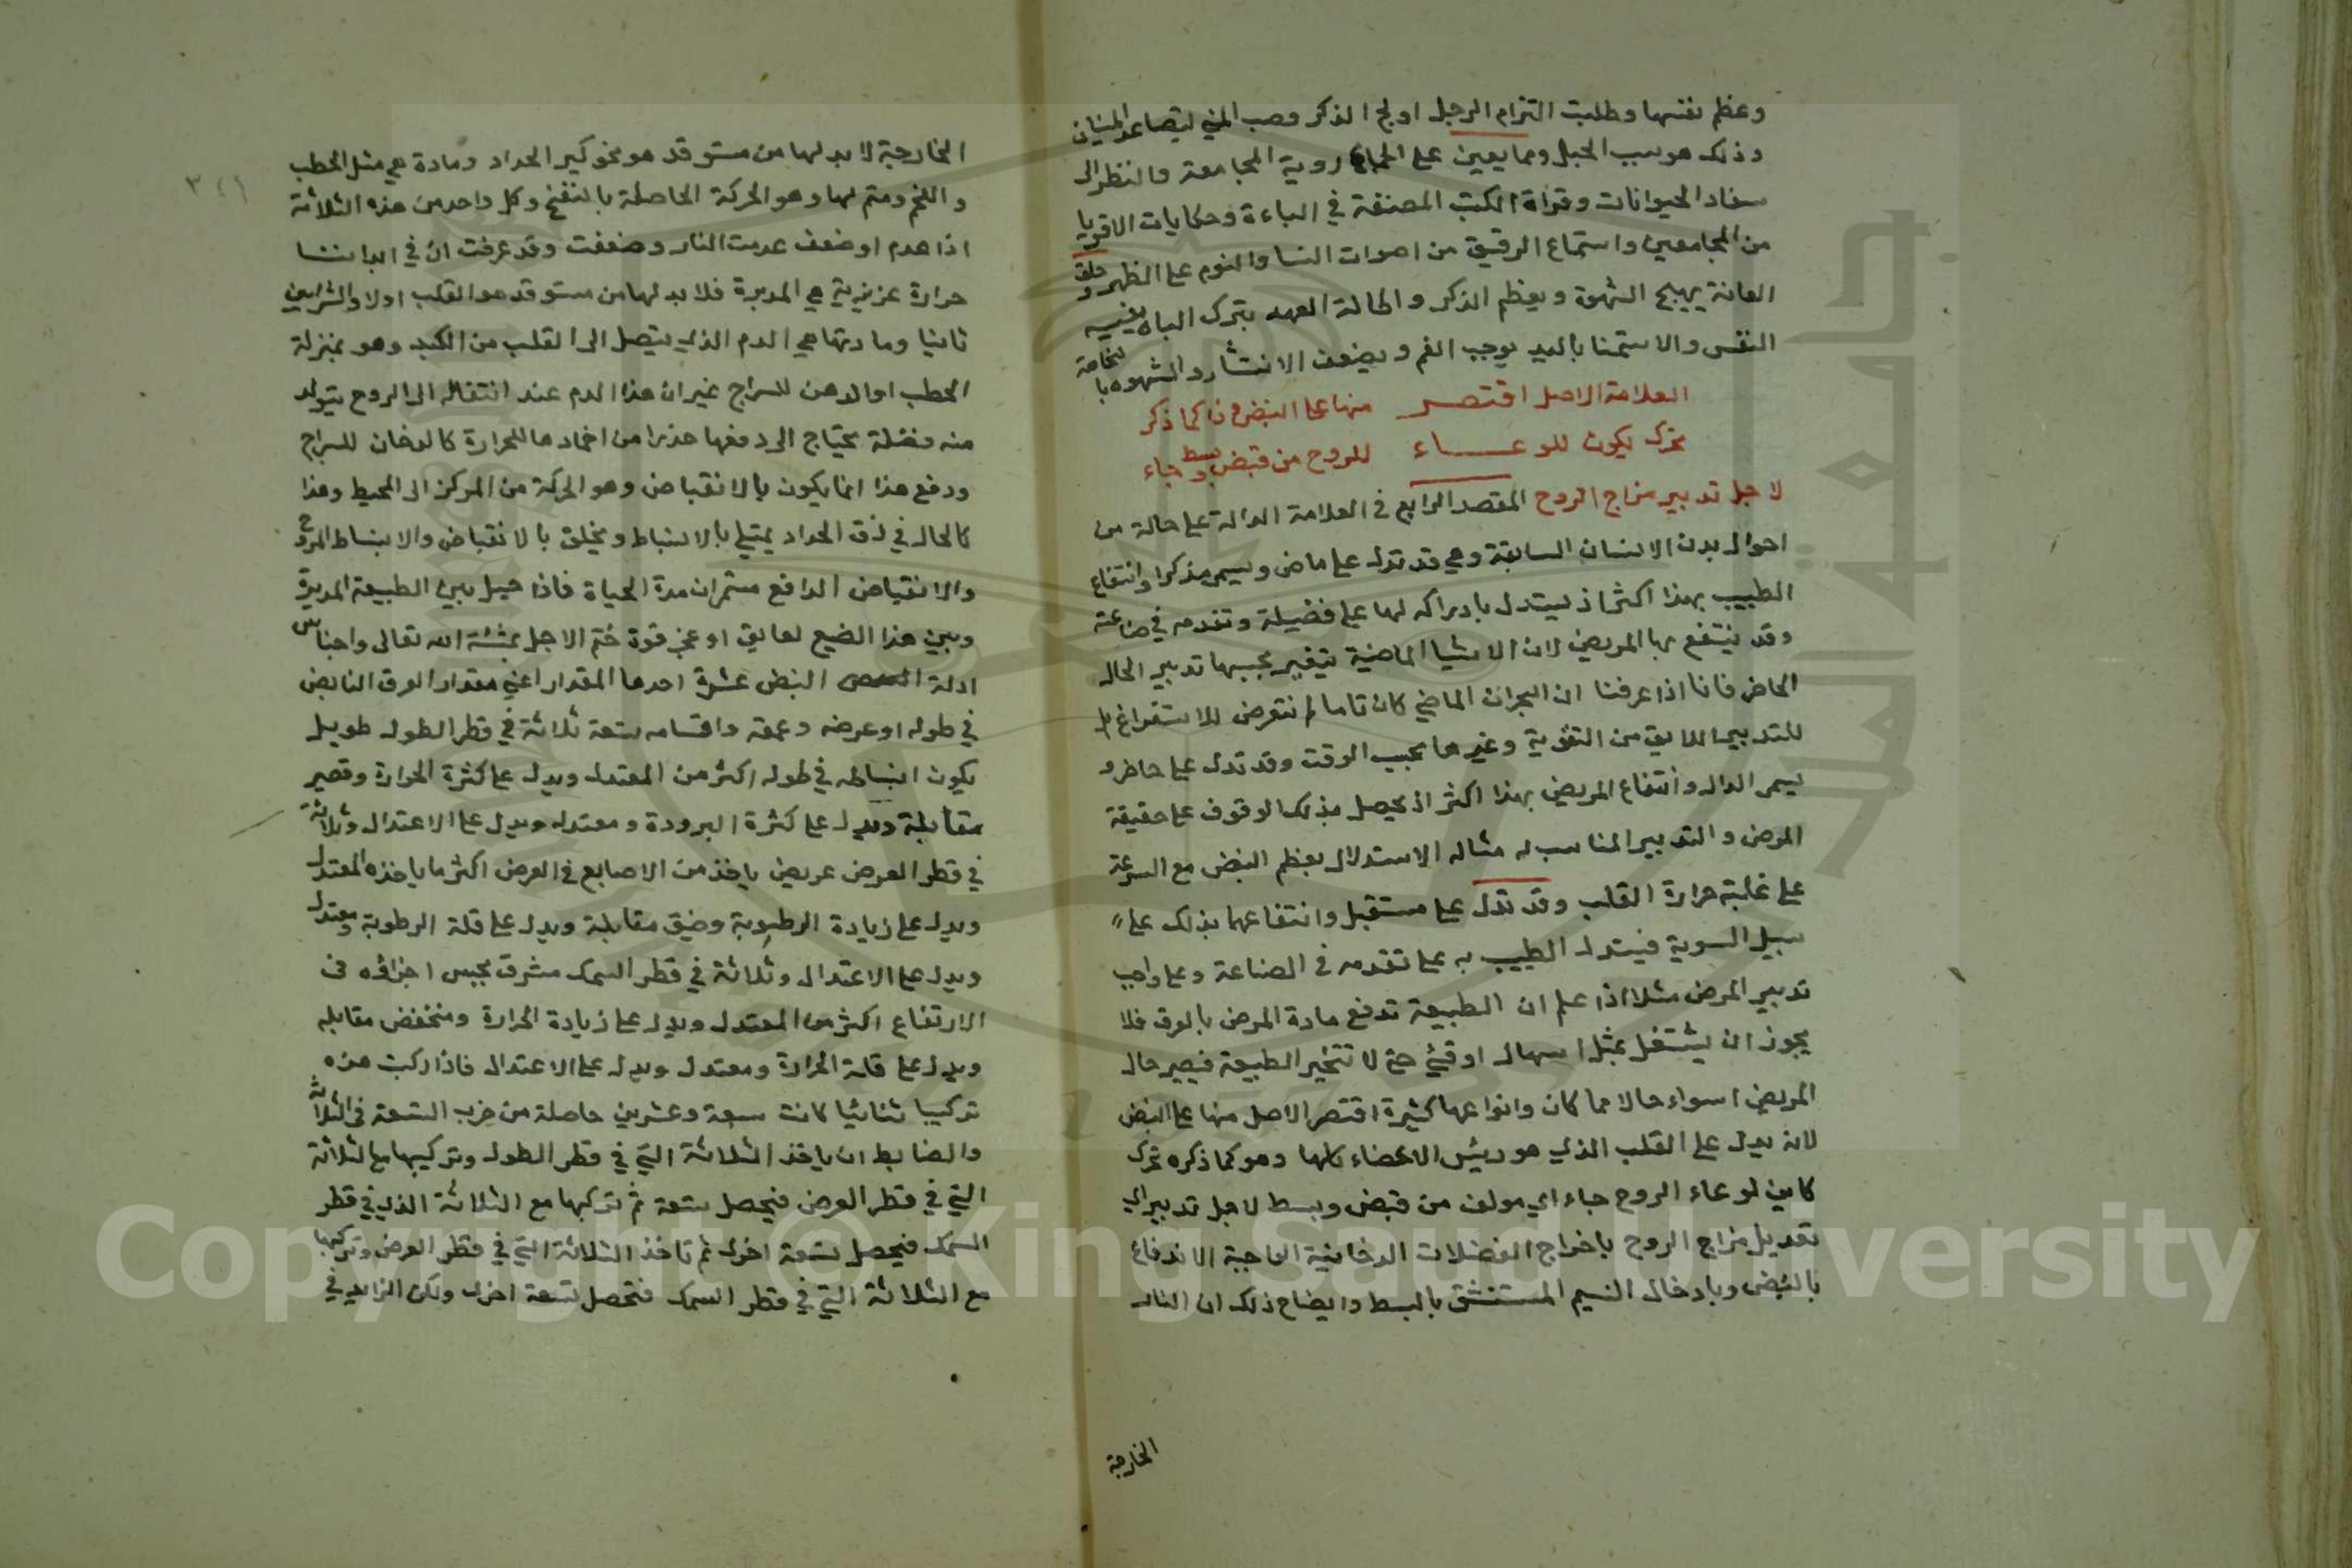 وعظم نفسها وطلبت التزام الرجل اولج الذكر وصب المني ليتصاعد المنيان
وذلك هو سبب الحبل ومما يعين على الجماع روية المجامعة والنظر الى
سفاد الحيوانات وقراة الكتب المصنفة في الباءة وحكايات الاقويا
من المجامعين واستماع الرقيق من اصوات النسا والنوم على الظهر وحلق
العانة يهيج الشهوة ويعظم الذكر واطالة العهد بترك الباه ينسيه
النفس والاستمنا باليد يوجب الغم ويضعف الانتشار والشهوه بالخاصة
العلامة الاصل اقتصر منها على النبض وذا كما ذكر
تحرك يكون للوعاء للروح من قبض وبسط جاء
لاجل تدبير مزاج الروح المقصد الرابع في العلامة الدالة على حالة من
احوال بدن الانسان السابقة وهي قد تدل على ماض ويسمى مذكرا وانتفاع
الطبيب بهذا اكثر اذ يستدل بادراكه لها على فضيلة وتقدمه في صناعته
وقد ينتفع بها المريض لان الاشيا الماضية يتغير بحسبها تدبير الحال
الحاضر فانا اذا عرفنا ان البحران الماضي كان تاما لم نتعرض للاستفراغ بل
للتدبير اللايق من التقوية وغيرها بحسب الوقت وقد تدل على حاضر و
يسمى الدال وانتفاع المريض بهذا اكثر اذ يحصل بذلك الوقوف على حقيقة
المرض والتدبير المناسب له مثاله الاستدلال بعظم النبض مع السرعة
على غلبة حرارة القلب وقد تدل على مستقبل وانتفاعهما بذلك على
سبيل السوية فيستدل الطبيب به على تقدمه في الصناعة وعلى واجب
تدبير المرض مثلا اذا علم ان الطبيعة تدفع مادة المرض بالعرق فلا
يجوز ان يشتغل بمثل اسهال او قيئ حتى لا تتحير الطبيعة فيصير حال
المريض اسواء حالا مما كان وانواعها كثيرة اقتصر الاصل منها على النبض
لانه يدل على القلب الذي هو رئيس الاعضاء كلها وهو كما ذكره تحرك
كاين لوعاء الروح جاء اي مولف من قبض وبسط لاجل تدبير اي
تعديل مزاج الروح باخراج الفضلات الدخانية الواجبة الاندفاع
بالقبض وبادخال النسيم المستنشق بالبسط وايضاح ذلك ان النار
الخارجة
٣٤١
الخارجية لا بد لها من مستوقد هو نحو كير الحداد ومادة هي مثل الحطب
والفحم ومتم لها وهو الحركة الحاصلة بالنفخ وكل واحد من هذه الثلاثة
اذا عدم او ضعف عدمت النار وضعفت وقد عرفت ان في ابداننا
حرارة غريزية هي المدبرة فلا بد لها من مستوقد هو القلب اولا والشرايين
ثانيا ومادتها هي الدم الذي يتصل الى القلب من الكبد وهو بمنزلة
الحطب او الدهن للسراج غير ان هذا الدم عند انتقاله الى الروح يتولد
منه فضلة يحتاج الى دفعها حذرا من اخمادها للحرارة كالدخان للسراج
ودفع هذا انما يكون بالانقباض وهو الحركة من المركز الى المحيط وهذا
كالحال في زق الحداد يمتلي بالانبساط ويخلق بالانقباض والانبساط المروح
والانقباض الدافع مستمران مدة الحياة فاذا حيل بين الطبيعة المدبرة
وبين هذا الضيع لعايق او عجز قوة ختم الاجل بمشئة الله تعالى واجناس
ادلة النبض عشرة احدها المقدار اعني مقدار العرق النابض
في طوله او عرضه وعمقه واقسامه تسعة ثلاثة في قطر الطول طويل
يكون انبساطه في طوله اكثر من المعتدل ويدل على كثرة الحرارة وقصير
مقابلة ويدل على كثرة البرودة ومعتدل ويدل على الاعتدال وثلاثة
في قطر العرض عريض ياخذ من الاصابع في العرض اكثر ما ياخذه المعتدل
ويدل على زيادة الرطوبة وضيق مقابلة ويدل على قلة الرطوبة ومعتدل
ويدل على الاعتدال وثلاثة في قطر السمك مشرف يحبس اجزاؤه في
الارتفاع اكثر من المعتدل ويدل على زيادة الحرارة ومنخفض مقابله
ويدل على قلة الحرارة ومعتدل ويدل على الاعتدال فاذا ركبت هذه
تركيبا ثنائيا كانت سبعة وعشرين حاصلة من ضرب التسعة في الثلاثة
والضابط ان ياخذ الثلاثة التي في قطر الطول وتركيبها مع الثلاثة
التي في قطر العرض فيحصل تسعة ثم تركبها مع الثلاثة الذي في قطر
السمك فيحصل تسعة اخرى ثم تاخذ الثلاثة التي في قطر العرض وتركبها
مع الثلاثة التي في قطر السمك فتحصل تسعة اخرى ولكن الزايد في
Copyright © King Saud University